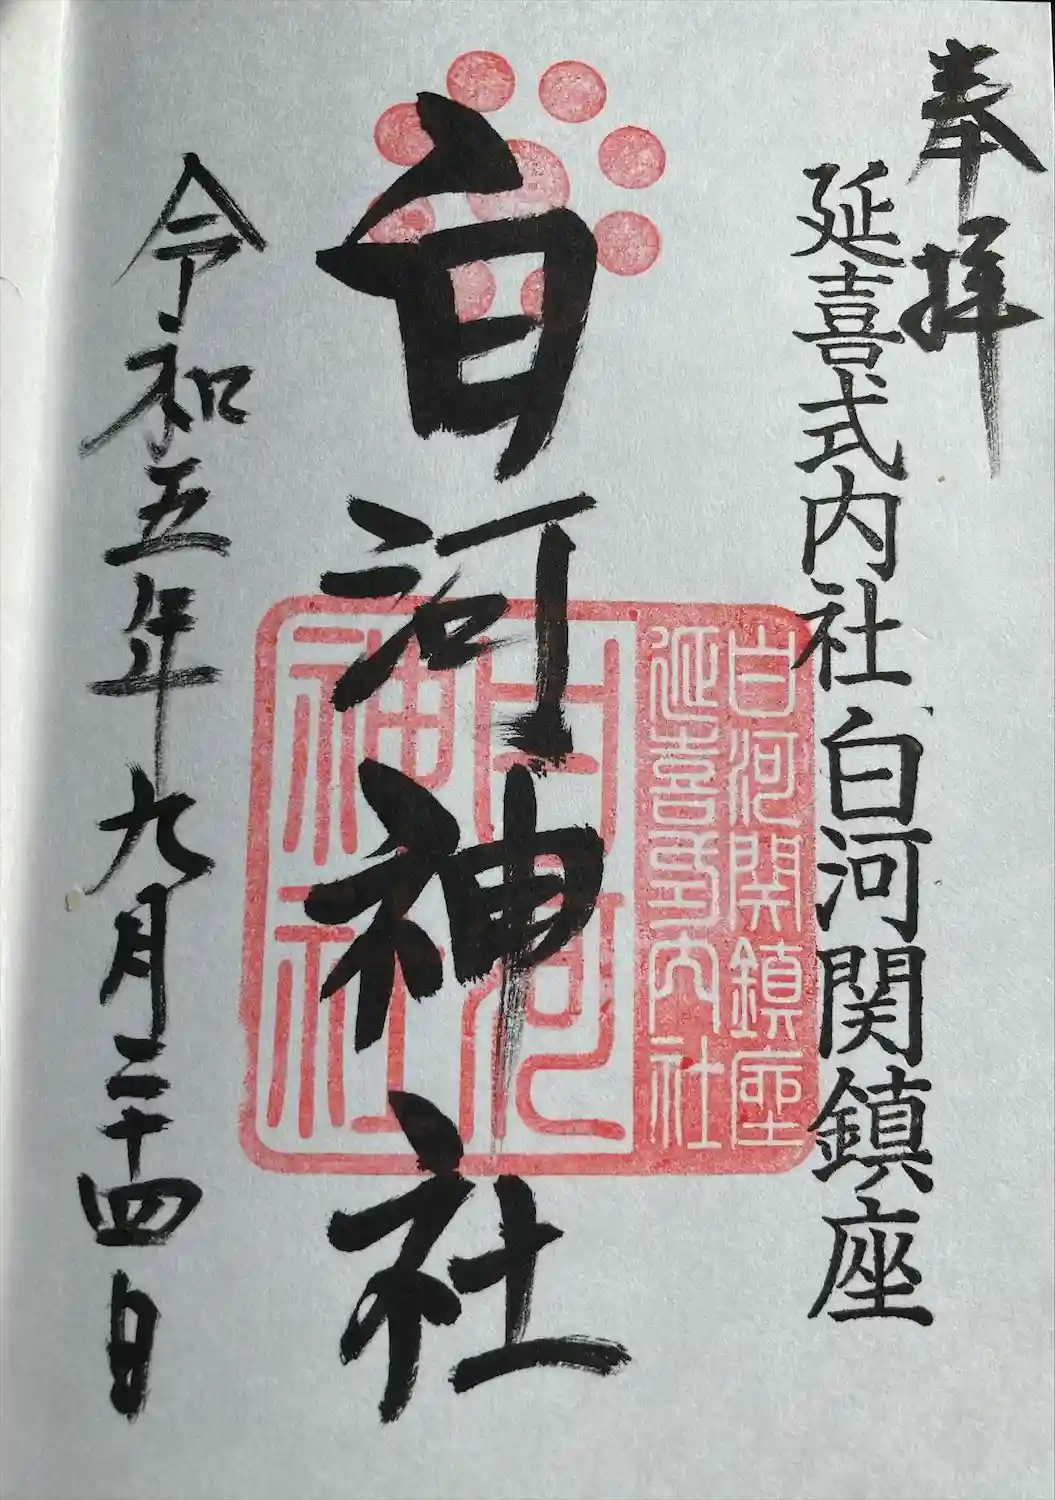 奉拝
延喜式内社白河関鎮座
白河神社
白河関鎮座
延喜式内社
白河
神社
令和五年九月二十四日